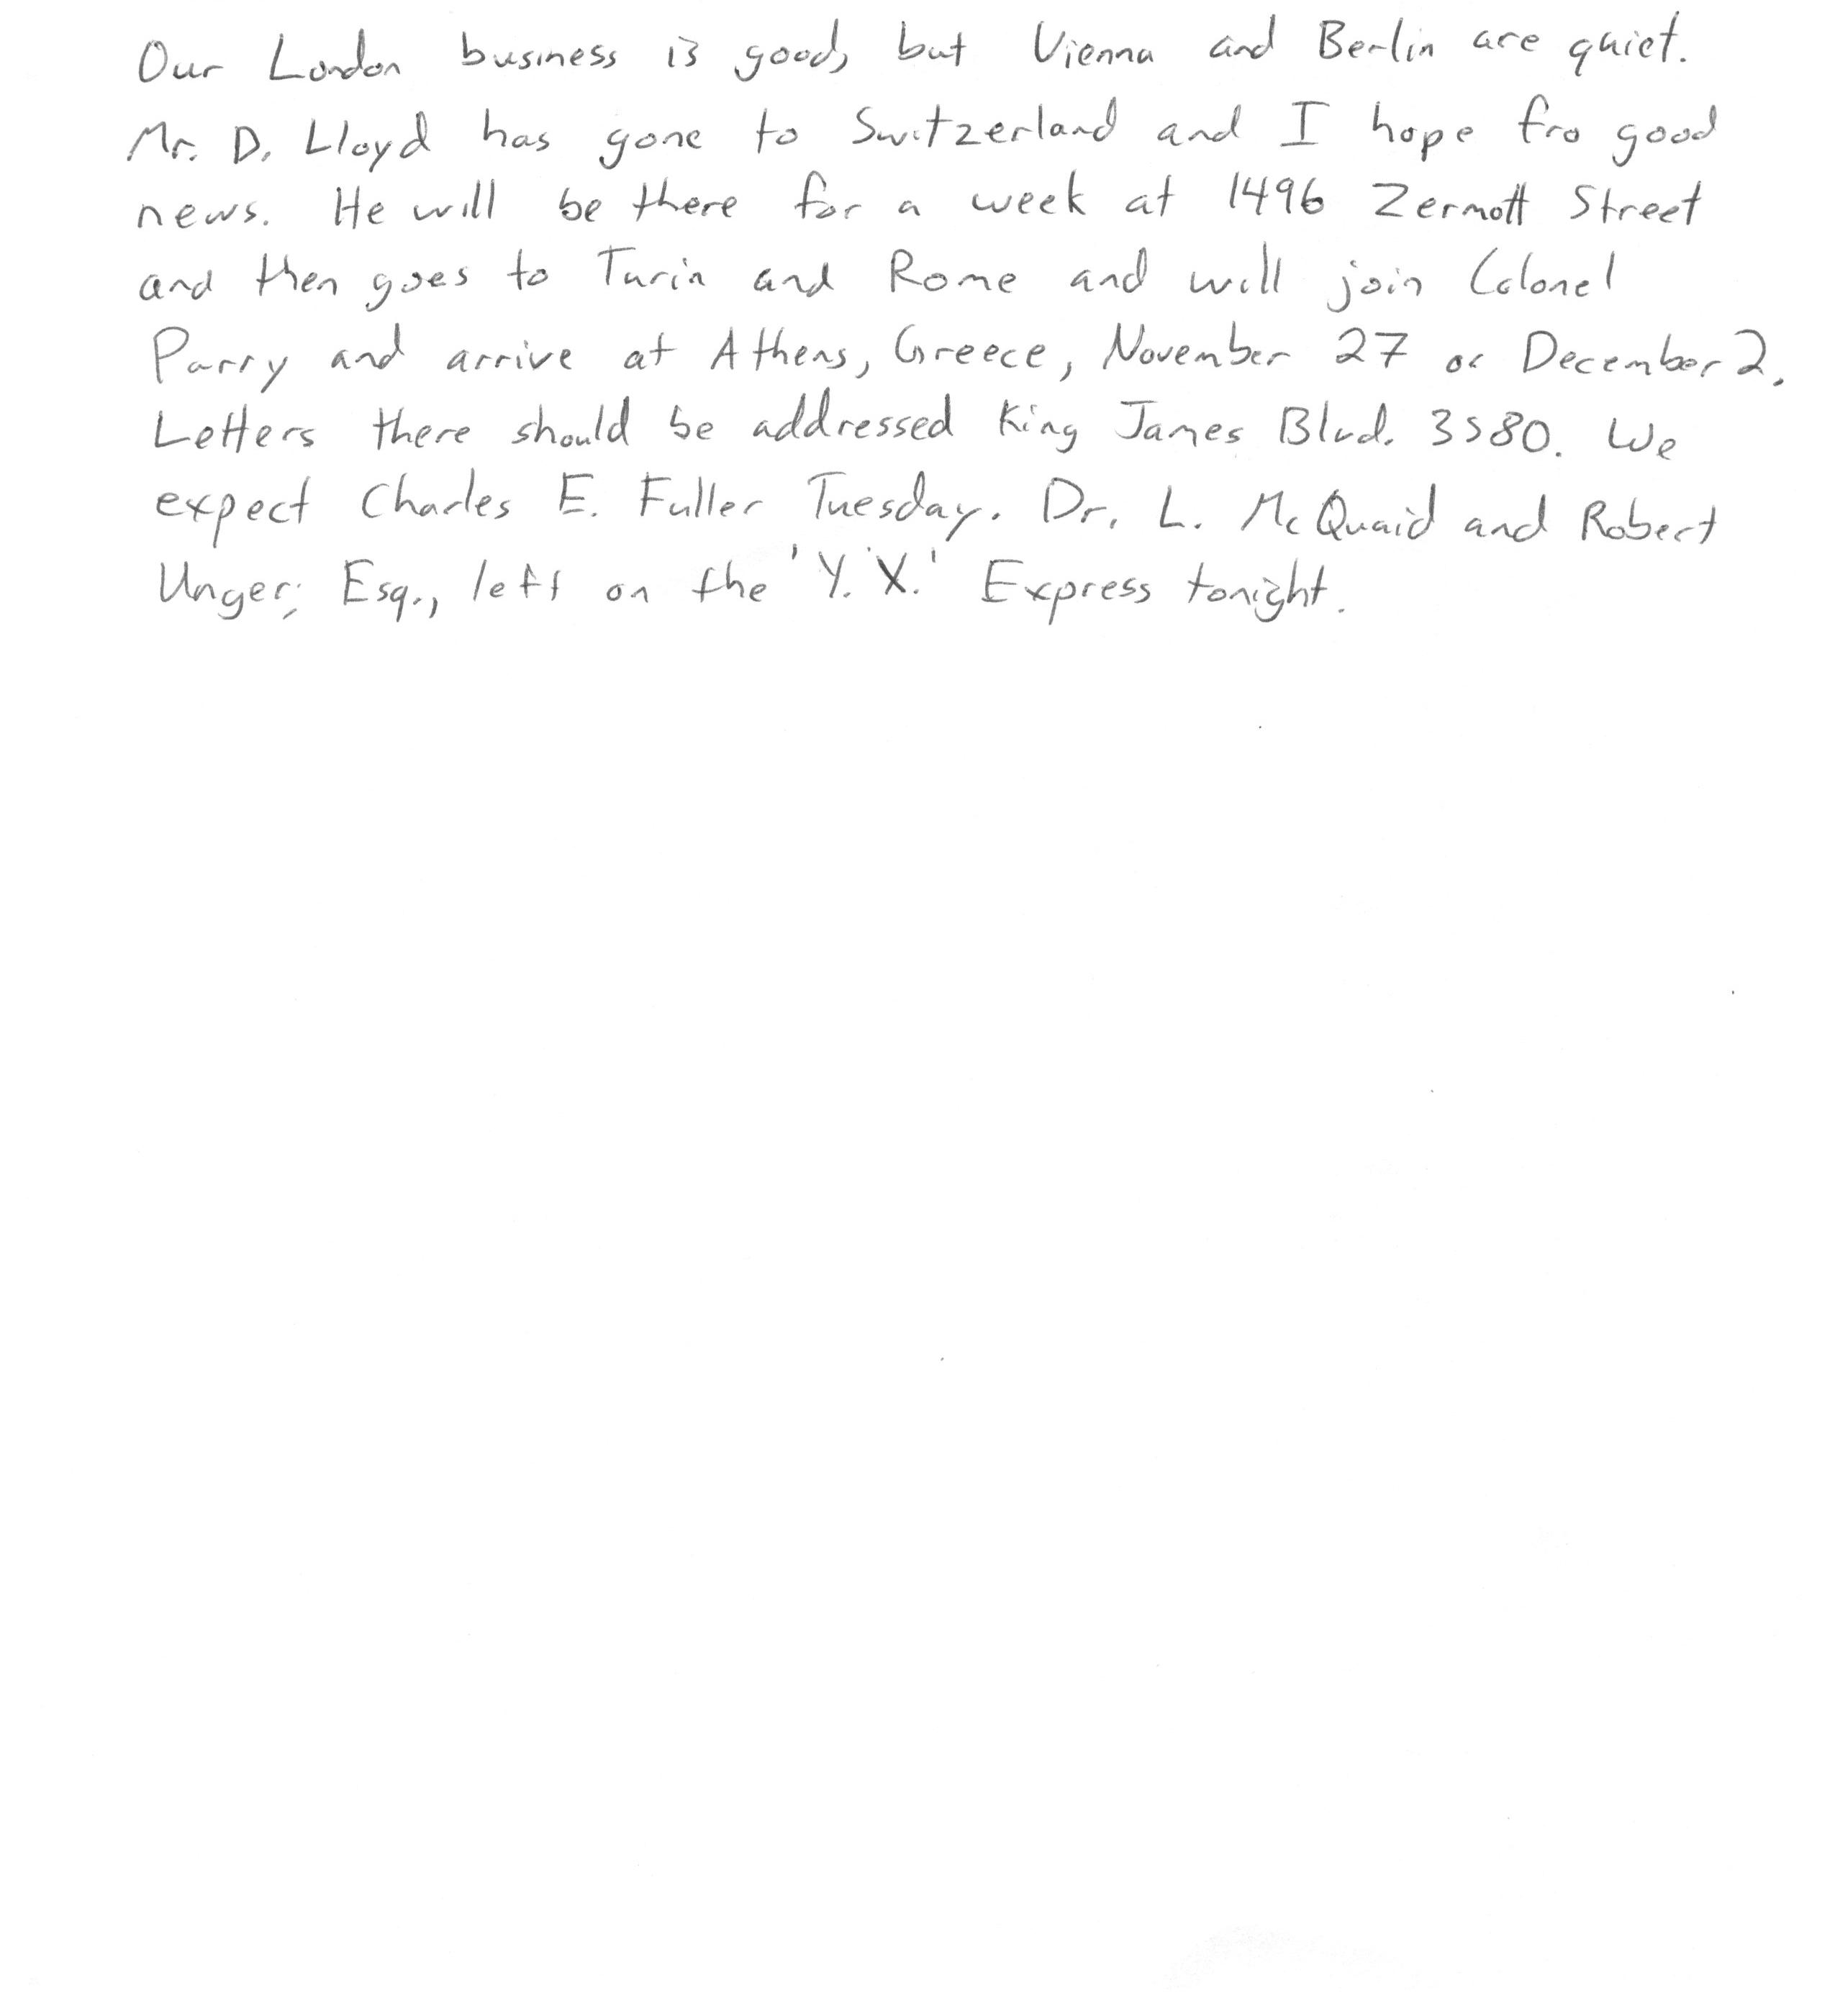 Our London business is good, but Vienna and Berlin are quiet.
Mr. D. Lloyd has gone to Switzerland and I hope fro good
news. He will be there for a week at 1496 Zermott Street
and then goes to Turin and Rome and will join Colonel
Parry and arrive at Athens, Greece, November 27 or December 2.
Letters there should be addressed King James Blvd. 3580. We
expect Charles E. Fuller Tuesday. Dr. L. McQuaid and Robert
Unger, Esq., left on the 'Y.X.' Express tonight.